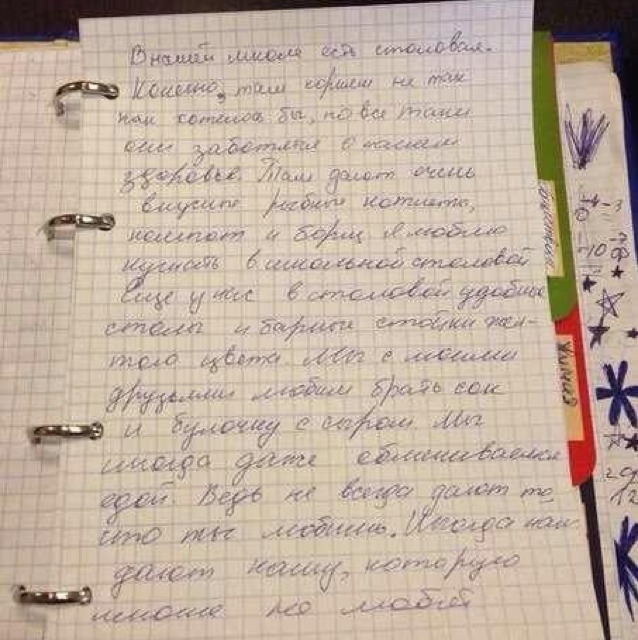 В нашей школе есть столовая.
Конечно, там кормят не так
как хотелось бы, но все таки
они заботятся о нашем
здоровье. Там дают очень
вкусные рыбные котлеты,
компот и борщ. Я люблю
кушать в школьной столовой
Еще у нас в столовой удобные
столы и барные стойки жел-
того цвета. Мы с моими
друзьями любим брать сок
и булочку с сыром. Мы
иногда даже обмениваемся
едой. Ведь не всегда дают то,
что ты любишь. Иногда нам
дают кашу, которую
многие не любят